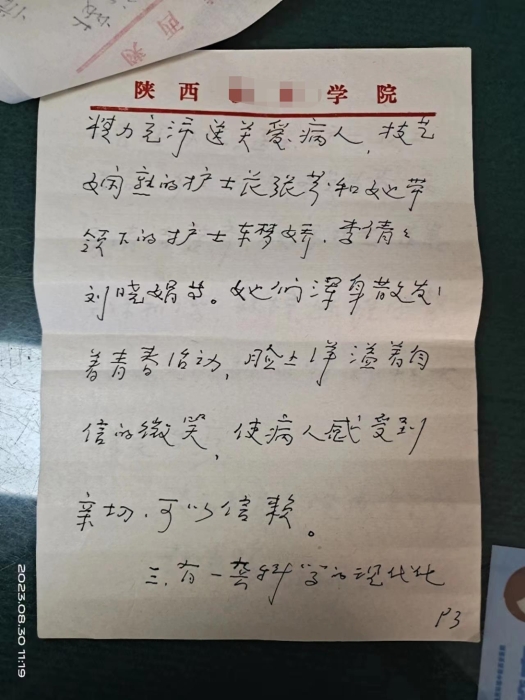 陕西 学院
精力充沛送关爱病人，技艺
娴熟的护士长张芳和她带
领下的护士车梦娇、李倩倩
刘晓娟等。她们浑身散发
着青春活动，脸上洋溢着自
信的微笑，使病人感受到
亲切、可以信赖。
三、有一套科学的现代化
P3
2023.08.30 11:19